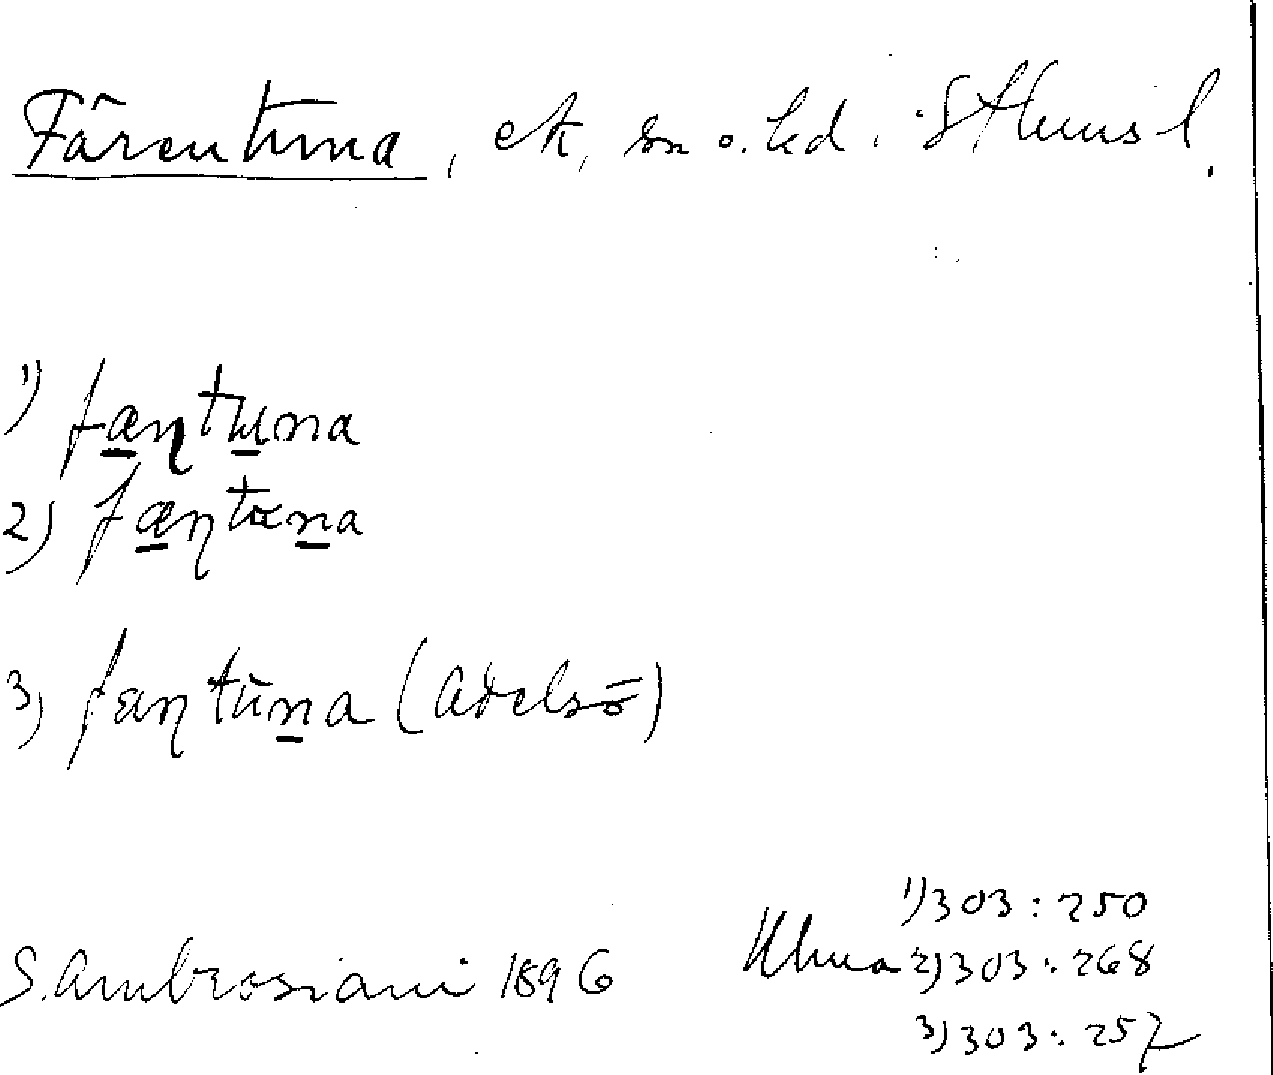 Färentuna, ek, sn o. hd. Sthms l.
1) fæņtuna
2) fæņtana
3) fæņtūna (Adelsö)
S. Ambrosiani 1896
1) 303:250
2) 303:268
3) 303:257